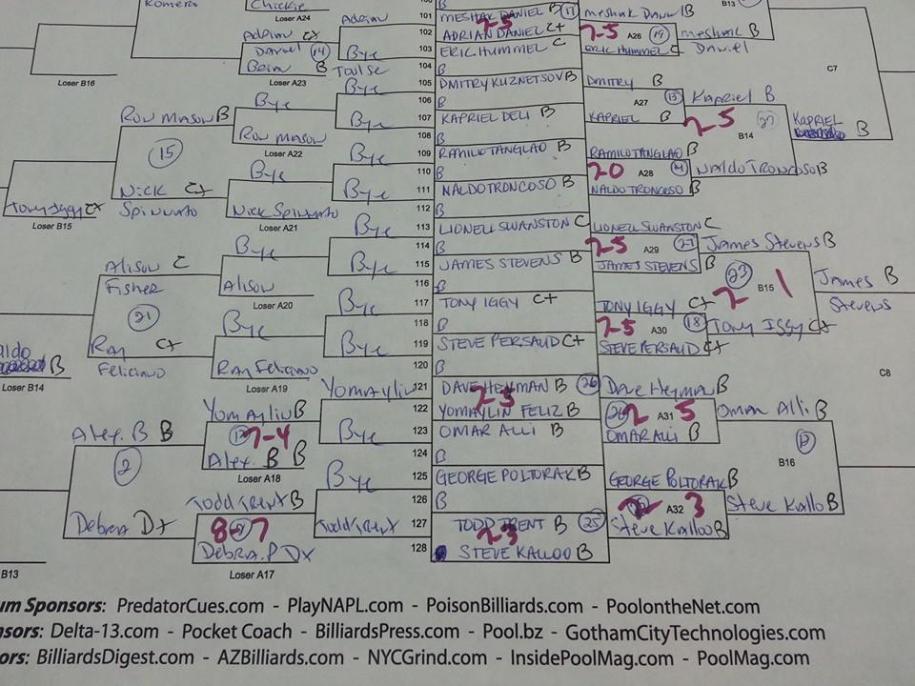 Romero
Chickie
Loser A24
Adrian
101
MESHAK DANIEL B
11
2-5
meshak Daniel B
B13
Adrian C+
Daniel
14
Boin B
Loser A23
Bye
Toulse
102
ADRIAN DANIEL C+
103
ERIC HUMMEL C
104
B
7-5
A26
19
ERIC HUMMEL C
meshak B
Daniel
Loser B16
Bye
105
DMITRY KUZNETSOV B
106
B
DMITRY B
C7
Ron Mason B
Bye
Ron Mason
Loser A22
Bye
107
KAPRIEL DELI B
108
B
A27
13
KAPRIEL B
Kapriel B
2-5
27
B14
KAPRIEL B
15
Bye
Bye
109
RAMILO TANGLAO B
110
RAMILO TANGLAO B
20
A28
Naldo Troncoso B
Nick C+
Spinnato
Nick Spinnato
Loser A21
111
NALDO TRONCOSO B
112
B
NALDO TRONCOSO B
Tony Iggy C+
Loser B15
Bye
113
LIONELL SWANSTON C
114
B
LIONELL SWANSTON C
2-5
A29
27
James Stevens B
Alison C
Fisher
Bye
Alison
Loser A20
Bye
115
JAMES STEVENS B
116
B
JAMES STEVENS B
23
2
B15
1
James B
Stevens
21
Bye
117
TONY IGGY C+
118
B
TONY IGGY C+
7-5
A30
18
Tony Iggy C+
Ray C+
Feliciano
Bye
Ray Feliciano
Loser A19
Bye
119
STEVE PERSAUD C+
120
B
STEVE PERSAUD C+
aldo
B
Loser B14
C8
Yomaylin
121
DAVE HEYMAN B
26
2-5
122
YOMAYLIN FELIZ B
Dave Heyman B
2
A31
5
Oman Alli B
Alex. B B
Yomaylin B
7-4
Alex. B B
Loser A18
Bye
123
OMAR ALLI B
124
B
OMAR ALLI B
B16
2
Bye
125
GEORGE POLTORAK B
126
B
GEORGE POLTORAK B
2
A32
3
Steve Kalloo B
Steve Kalloo B
Debra D+
Todd Trent B
8-7
Debra. P D+
Loser A17
Todd Trent
127
TODD TRENT B
25
2-3
128
STEVE KALLOO B
B13
um Sponsors: PredatorCues.com - PlayNAPL.com - PoisonBilliards.com - PoolontheNet.com
nsors: Delta-13.com - Pocket Coach - BilliardsPress.com - Pool.bz - GothamCityTechnologies.com
ors: BilliardsDigest.com - AZBilliards.com - NYCGrind.com - InsidePoolMag.com - PoolMag.com